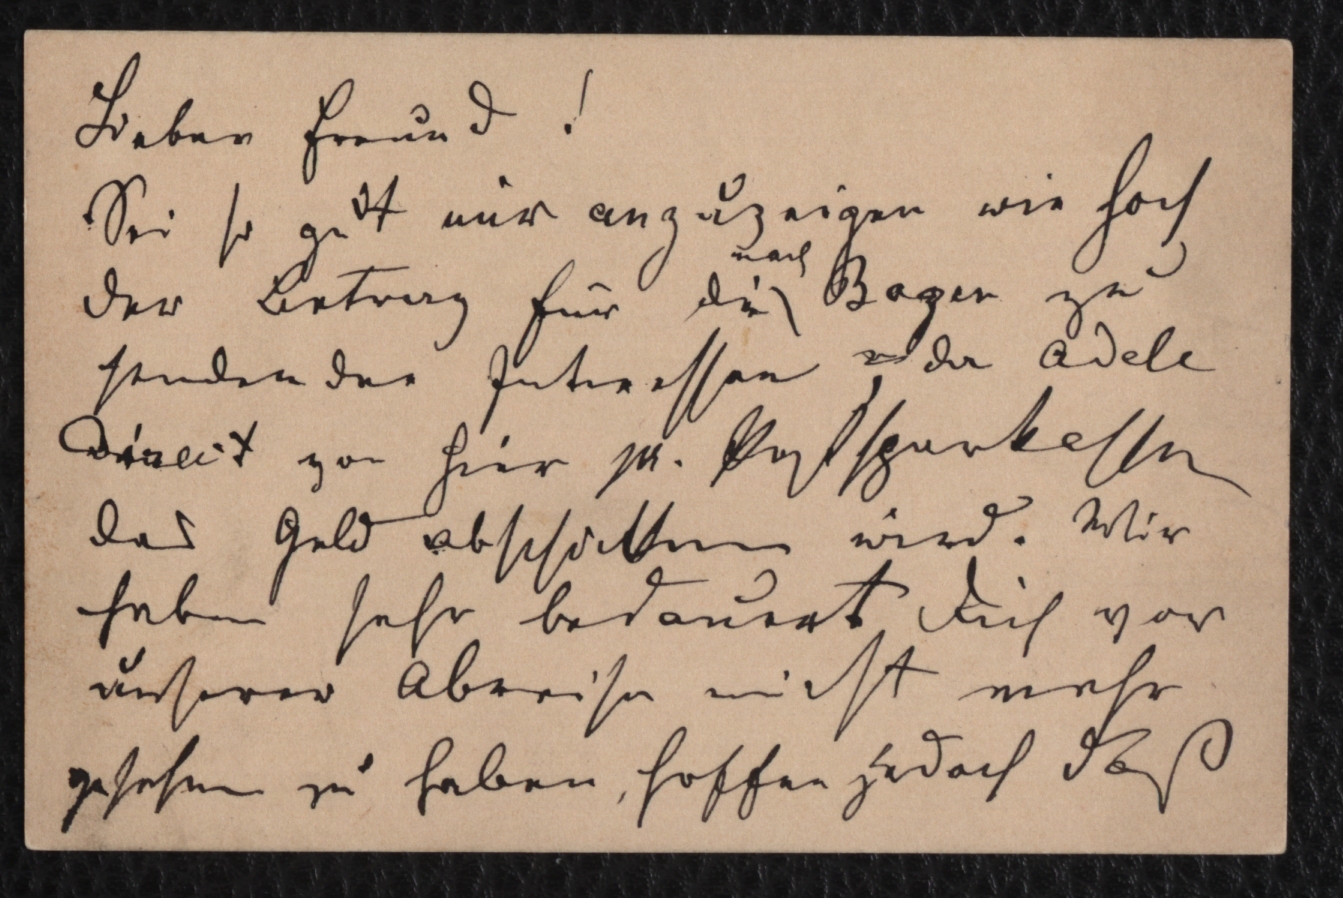 Lieber Freund!
Sei so gut mir anzuzeigen wie hoch
der Betrag für die nach Bozen zu
sendenden Interessen, da Adele
direct von hier pr. Postsparkasse
das Geld abschicken wird. Wir
haben sehr bedauert Dich vor
unserer Abreise nicht mehr
gesehen zu haben, hoffen jedoch daß